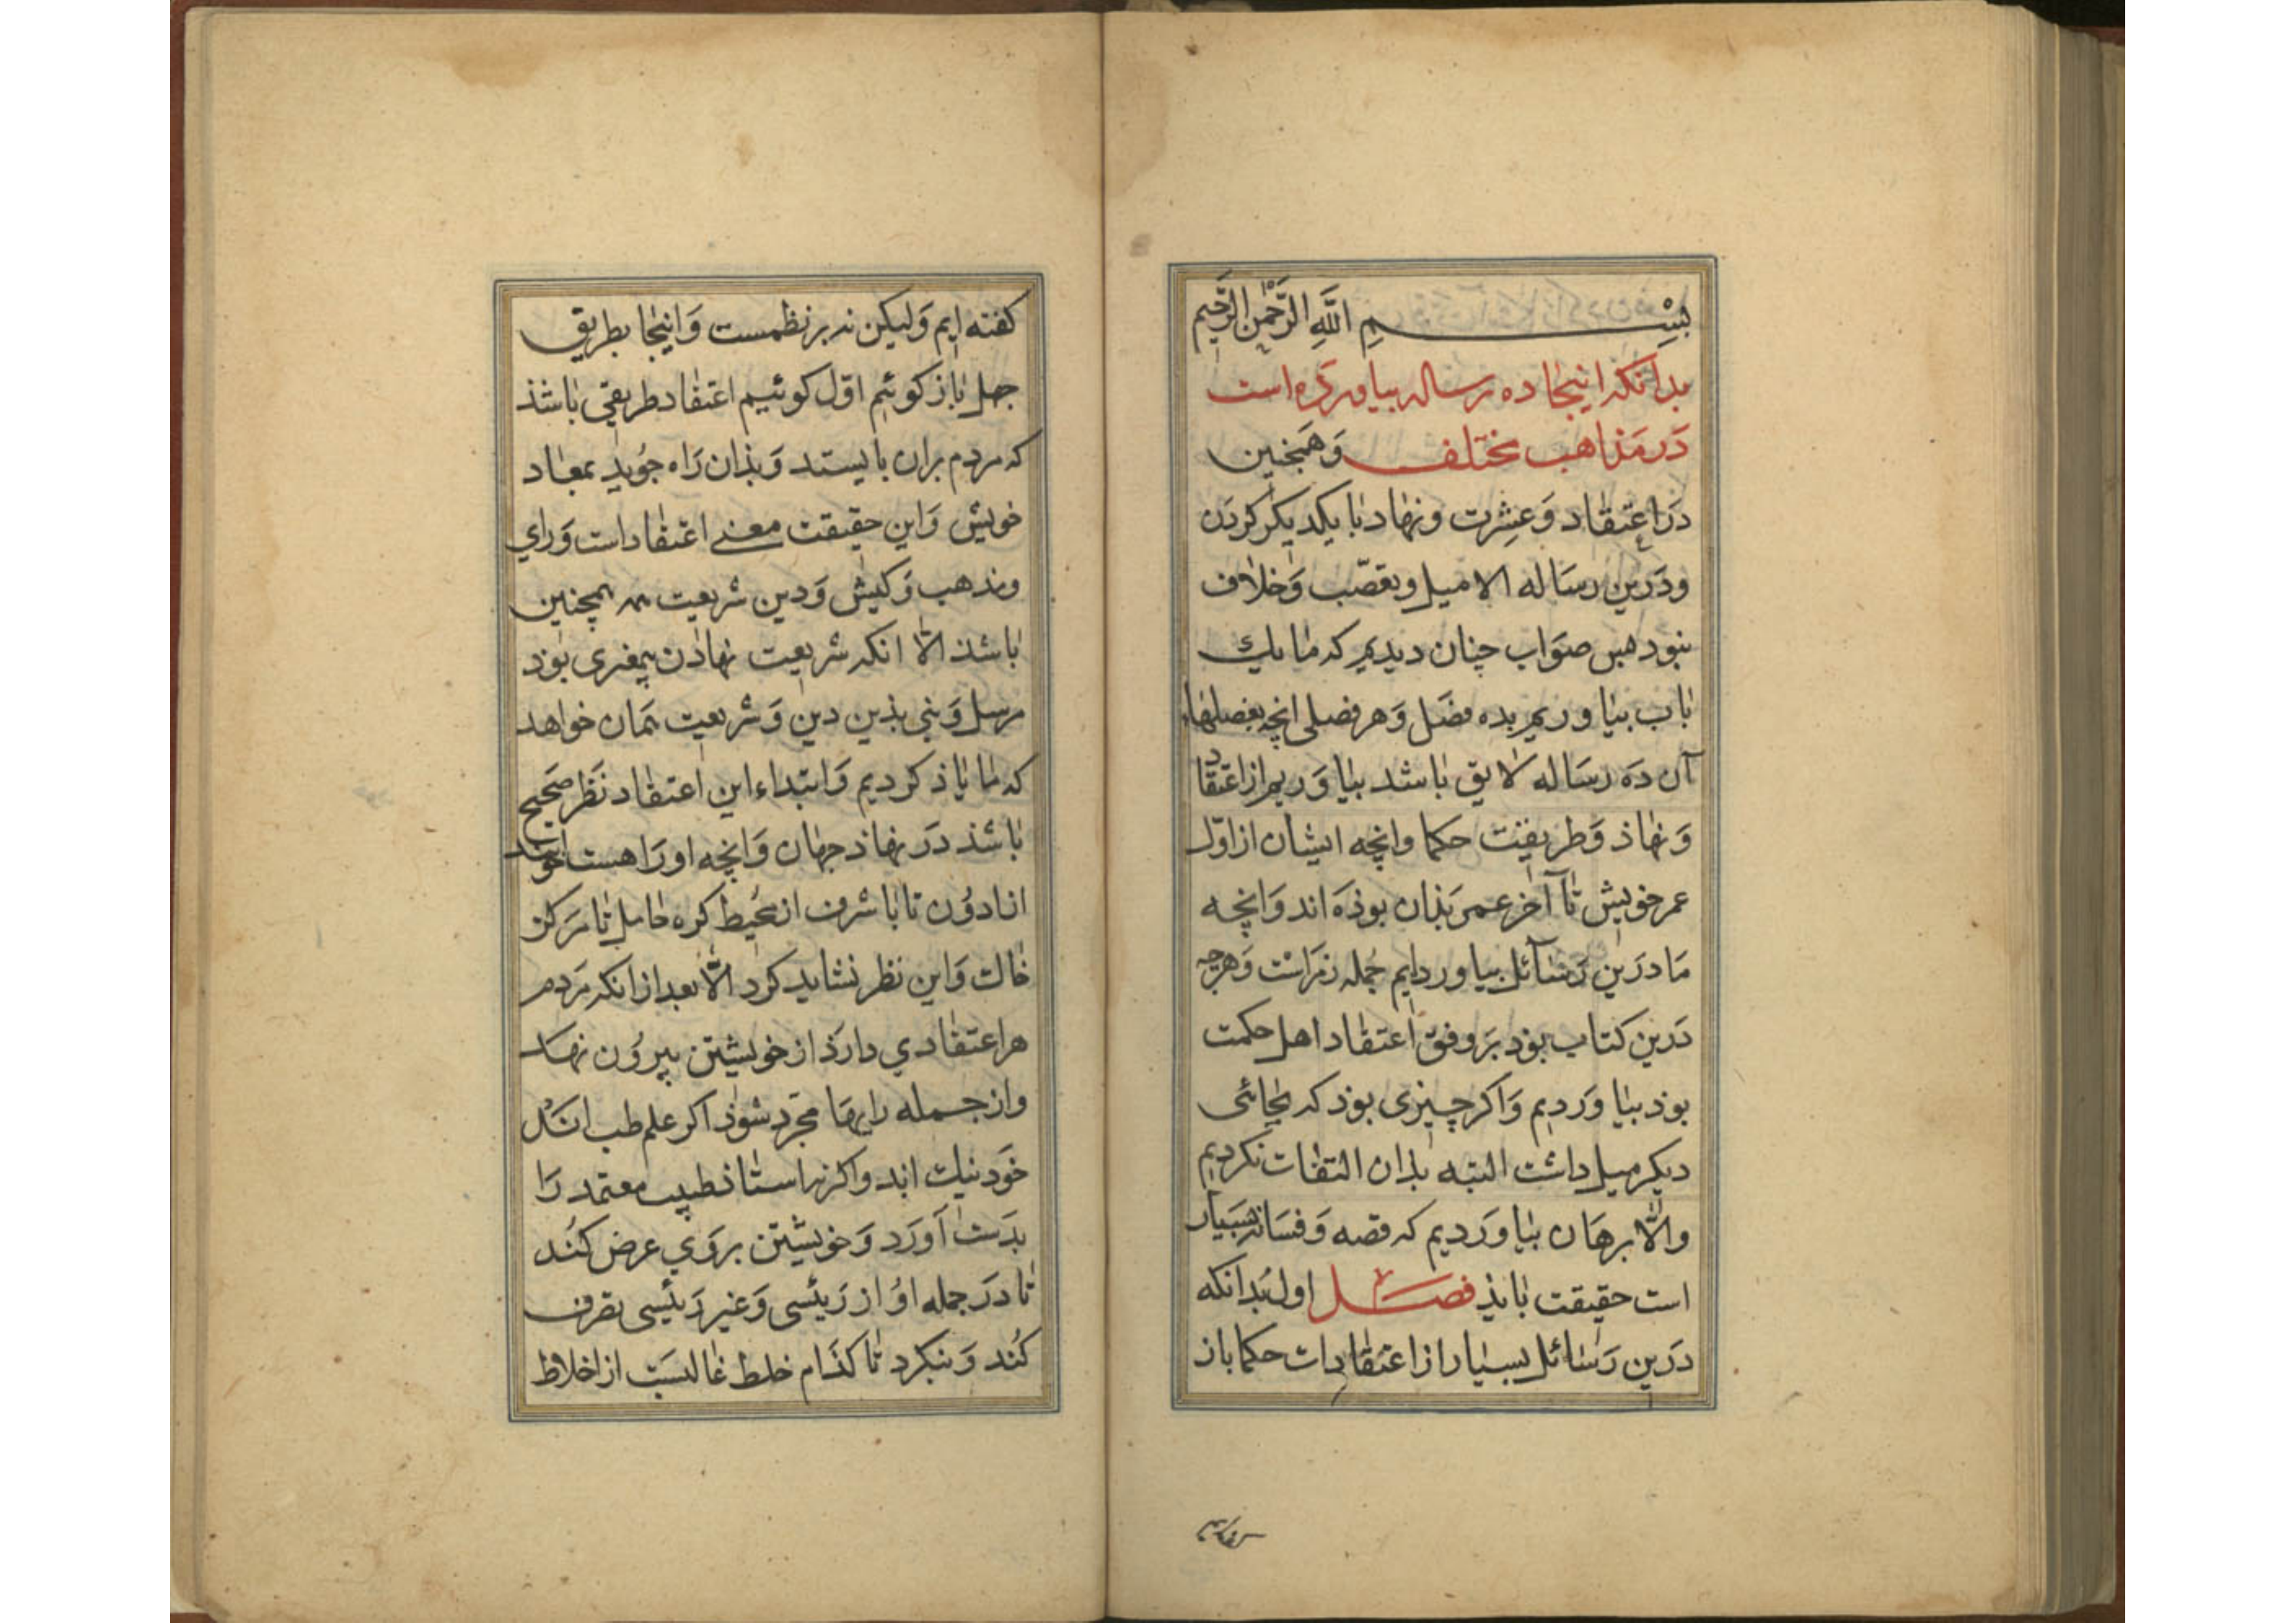 بِسْمِ اللَّهِ الرَّحْمنِ الرَّحِيم
بدانکه اینجا ده رساله بیاورده است
دَر مَذاهب مختلف وَهمچنین
دَر اعتقاد وَعِشرت ونهاد با یکدیکر کردن
ودَرین رسَاله الا میل وتعصّب وَخلاف
نبود صوَاب چنان دیدیم که ما یك
باب بیاوریم بده فصَل وَهر فصلی انچه بفصلهاء
آن دَه رسَاله لایق باشد بیاوَریم از اعتقاد
وَنهاذ وَطریقت حکما وانچه ایشان از اوّل
عمر خویش تا آخر عمر بَذان بوذَه اند وَانچه
مَا دَرین رَسَآئل بیاوردایم جُمله رَمزاست وَهرچه
دَرین کتاب بوَد بَر وفق اعتقاد اهل حکمت
بوذ بیاوَردیم وَاکر چیزی بوذ که بجائی
دیکر میل داشت البته بدان التفات نکردیم
والّا برهَان بیاوَردیم که قصه وَفسانه بسیار
است حقیقت بایذ فصل اول بُدانکه
دَرین رَسَائل بسیار از اعتقادات حکما باز
کفته ایم وَلیکن نه بر نظمست وَاینجا بطریق
جمل باز کوئیم اوّل کوئیم اعتقاد طریقی باشَذ
که مردم بران بایستد وَبذان رَاه جوُید بمعاد
خویش وَاین حقیقت معنی اعتقاد است وَرای
ومذهب وَکیش وَدین شریعت همچنین
باشذ الّا انکه شریعت نهاذن پیغمبری بوَد
مرسل وَنبی بذین دین وَشریعت همان خواهد
که ما یاذ کردیم وَابتداء این اعتقاد نَظر صَحیح
باشذ دَر نهاذ جهان وَانچه اورَا هست
از ادوُن تا باشرف از مُحیط کره تا مَرکز
خاك وَاین نظر نشاید کرد الّا بعد از انکه مَردم
هر اعتقادی دارذ از خویشتن بیروُن نهد
واز جمله رایهَا مجَرّد شوذ اکر علم طب اندَر
خوَد نیك ابد واکر نه استاذ طبیب معتمد رَا
بدَست آوَرَد وَخویشتن بروَی عرض کُند
تا دَر جمله اوُ از رَئیسی وَغیر رَئیسی تصرف
کُند وَبنکرد تا کذَام خلط غالبسَت از اخلاط